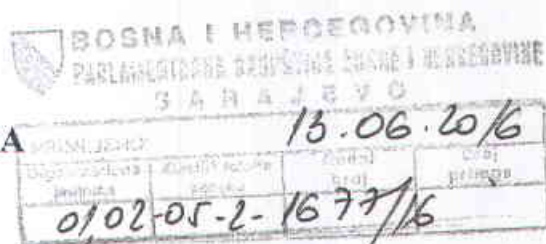 BOSNA I HERCEGOVINA
PARLAMENTARNA SKUPŠTINA BOSNE I HERCEGOVINE
SARAJEVO
A
PRIMLJENO: 13.06.2016
Organizaciona jedinica
Redni broj
Broj priloga
01,02-05-2-1677/16